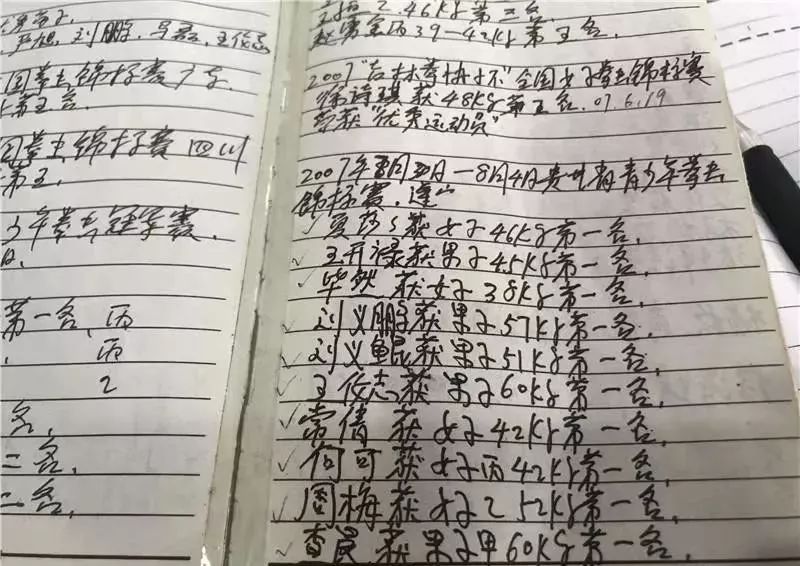 严旭、刘鹏、
国拳击锦标赛广东
第五名.
国拳击锦标赛四川
第五.
少年拳击冠军赛.
第一名, 丙
丙
乙
名,
二名,
二名,
乙.46Kg第三名.
丙39—42Kg第五名.
全国女子拳击锦标赛
获48Kg第五名.07.6.19
荣获"优秀运动员"
2007年 日—8月4日贵州省青少年拳击
锦标赛.遵义
夏莎莎获女子46Kg第一名,
王开禄获男子45Kg第一名,
毕然获女子38Kg第一名,
刘义鹏获男子57Kg第一名,
刘义鲲获男子51Kg第一名,
王俊志获男子60Kg第一名,
常倩获女子42Kg第一名,
何可获女子丙42Kg第一名,
周梅获女子乙52Kg第一名,
查 获男子甲60Kg第一名,